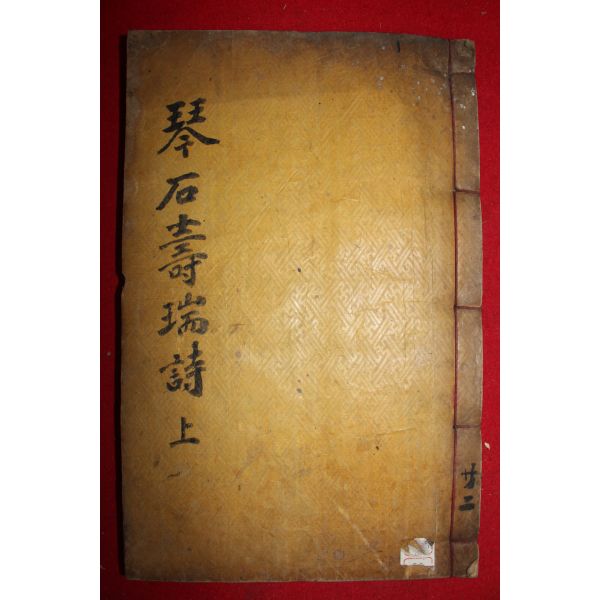 琴石壽瑞詩 上
廿二